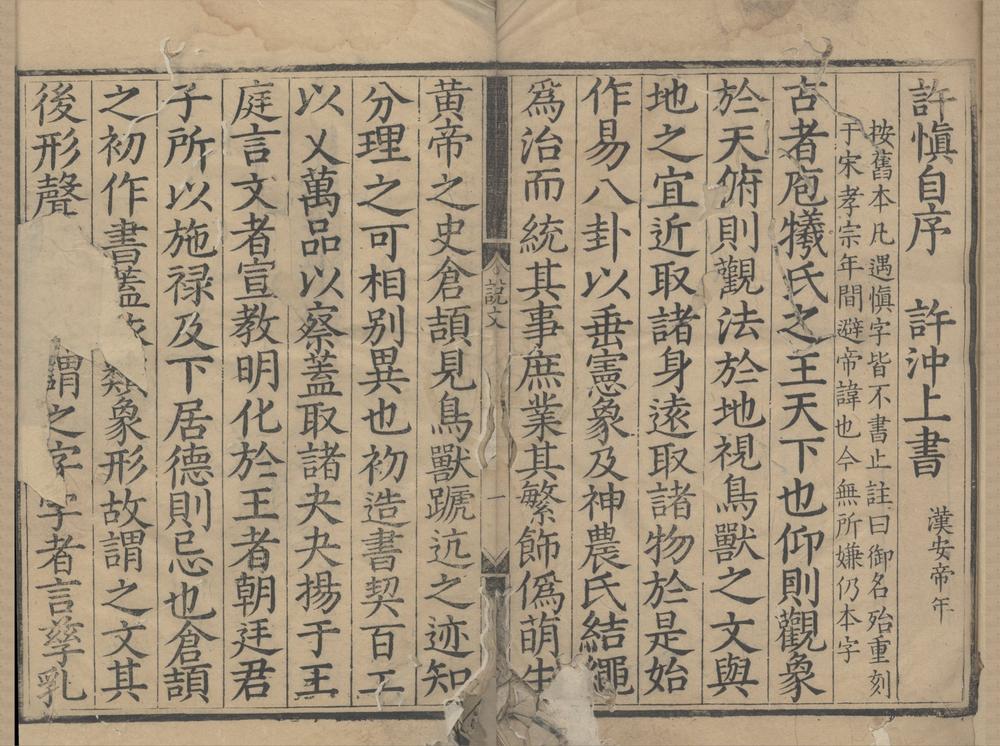 許愼自序 許沖上書 漢安帝年
按舊本凡遇愼字皆不書止註曰御名殆重刻
于宋孝宗年間避帝諱也今無所嫌仍本字
古者庖犧氏之王天下也仰則觀象
於天俯則觀法於地視鳥獸之文與
地之宜近取諸身遠取諸物於是始
作易八卦以垂憲象及神農氏結繩
爲治而統其事庶業其繁飾僞萌生
說文 一
黃帝之史倉頡見鳥獸蹏迒之迹知
分理之可相別異也初造書契百工
以乂萬品以察蓋取諸夬夬揚于王
庭言文者宣教明化於王者朝廷君
子所以施祿及下居德則忌也倉頡
之初作書蓋依類象形故謂之文其
後形聲 謂之字字者言孳乳